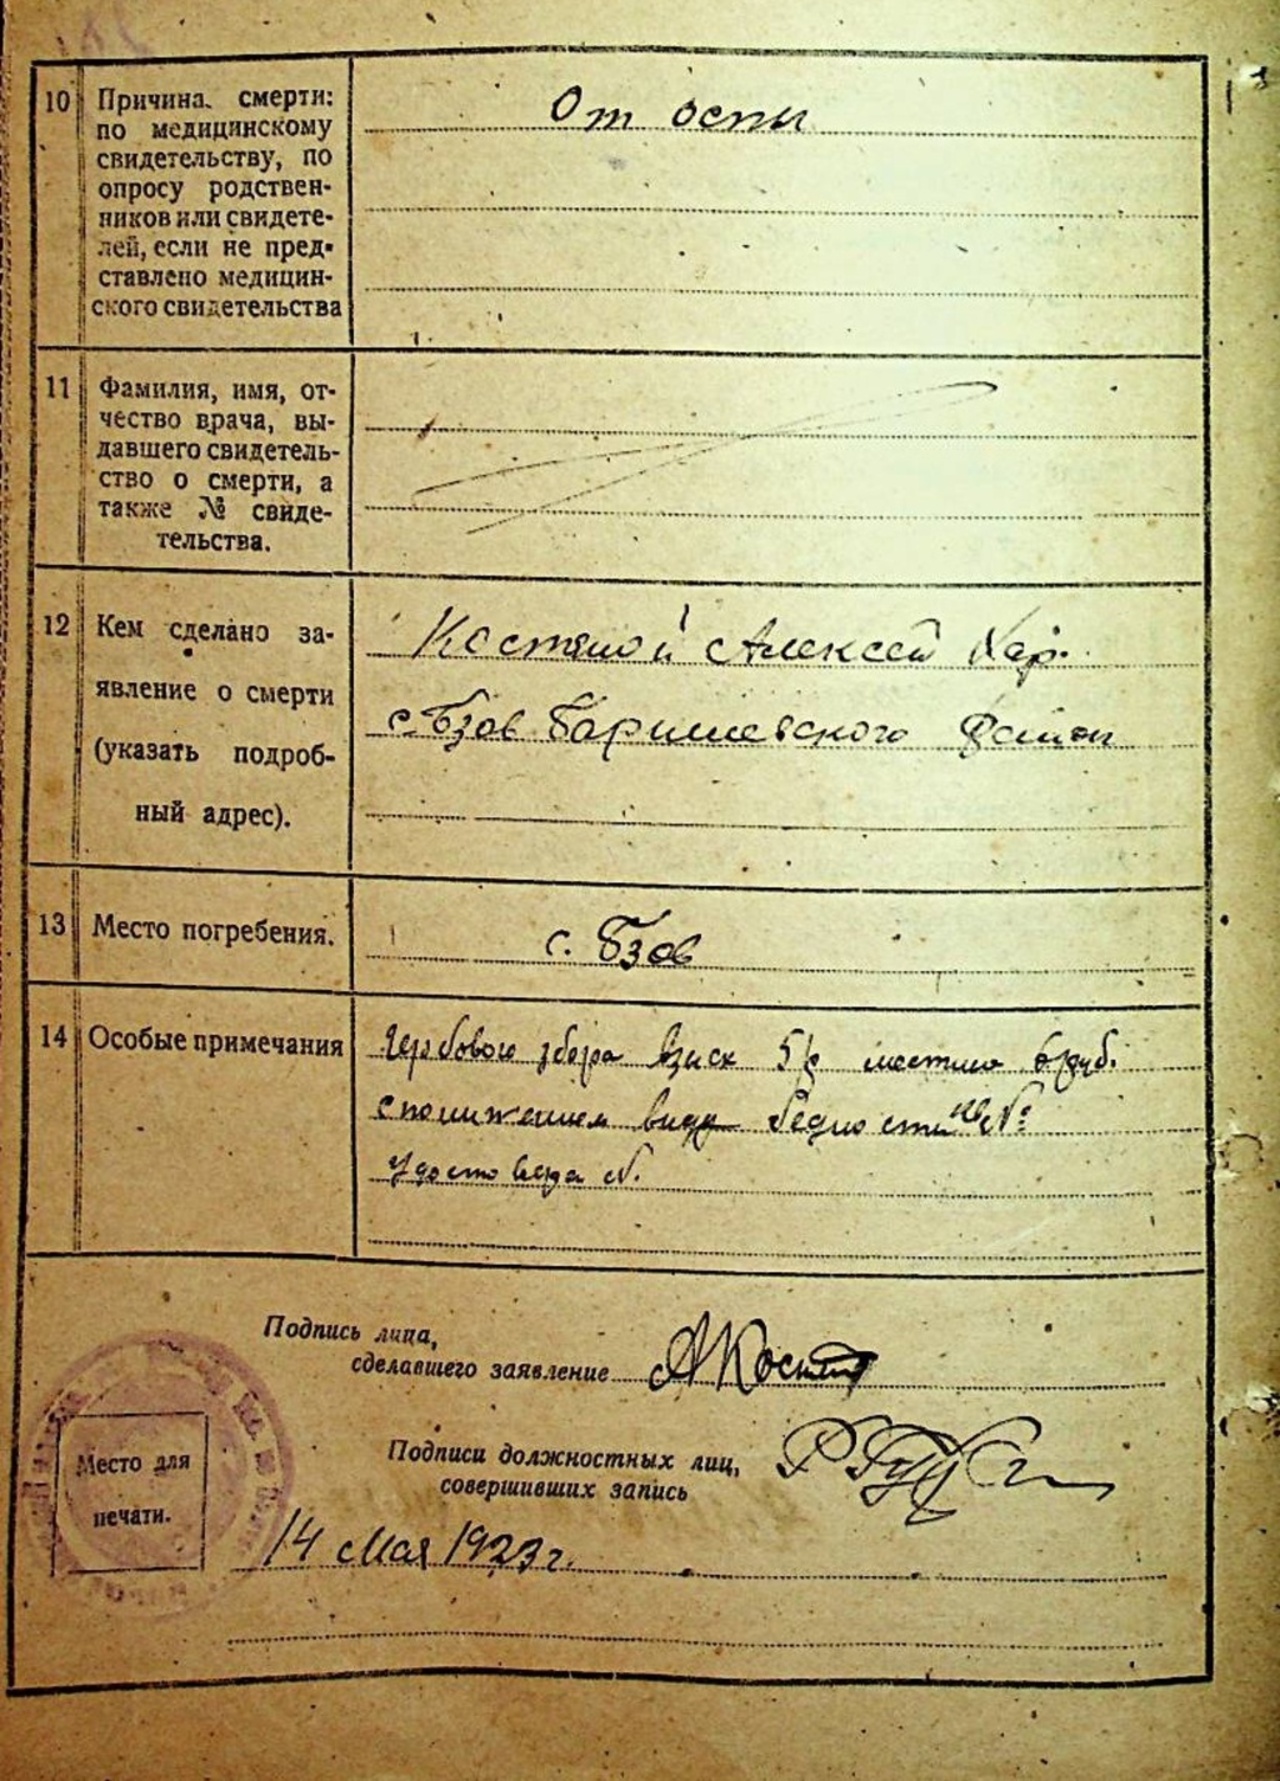 10 Причина смерти: по медицинскому свидетельству, по опросу родственников или свидетелей, если не представлено медицинского свидетельства
От оспы
11 Фамилия, имя, отчество врача, выдавшего свидетельство о смерти, а также № свидетельства.
12 Кем сделано заявление о смерти (указать подробный адрес).
Костяной Алексей Хар.
с. Бзов Баришевского Район
13 Место погребения.
с. Бзов
14 Особые примечания
Гербового збора взиск 5 р местного 6 руб.
с понижением виду бедности кв №
Удостовера №.
Подпись лица,
сделавшего заявление
АКостя
Подписи должностных лиц,
совершивших запись
Место для
печати.
14 Мая 1923 г.